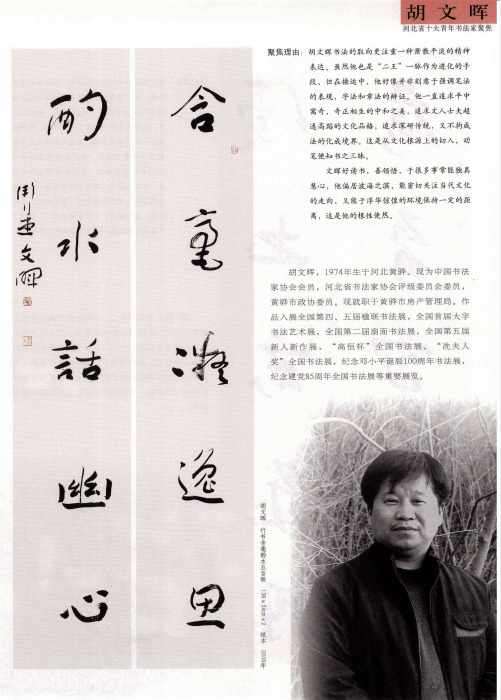 胡文晖
河北省十大青年书法家聚焦
聚焦理由：胡文晖书法的取向更注重一种萧散平淡的精神
表达，虽然他也是“二王”一脉作为进化的手
段，但在操运中，他好像并非刻意于强调笔法
的表现，字法和章法的辩证，他一直追求平中
寓奇，奇正相生的中和之美，追求文人士夫超
逸高蹈的文化品格，追求深研传统，又不拘成
法的化成境界。这是从文化根源上的切入，动
笔便知书之三昧。
文晖好读书，善领悟，于很多事常能独具
慧心，他偏居渤海之滨，能密切关注当代文化
的走向，又能于浮华惊惶的环境保持一定的距
离，这是他的根性使然。
胡文晖，1974年生于河北黄骅。现为中国书法
家协会会员，河北省书法家协会评级委员会委员，
黄骅市政协委员。现就职于黄骅市房产管理局。作
品入展全国第四、五届楹联书法展，全国首届大字
书法艺术展，全国第二届扇面书法展，全国第五届
新人新作展，“高恒杯”全国书法展，“冼夫人
奖”全国书法展，纪念邓小平诞辰100周年书法展，
纪念建党85周年全国书法展等重要展览。
含毫凝逸思
酌水話幽心
文暉
胡文晖 行书含毫酌水五言联 138×34cm×2 纸本 2008年